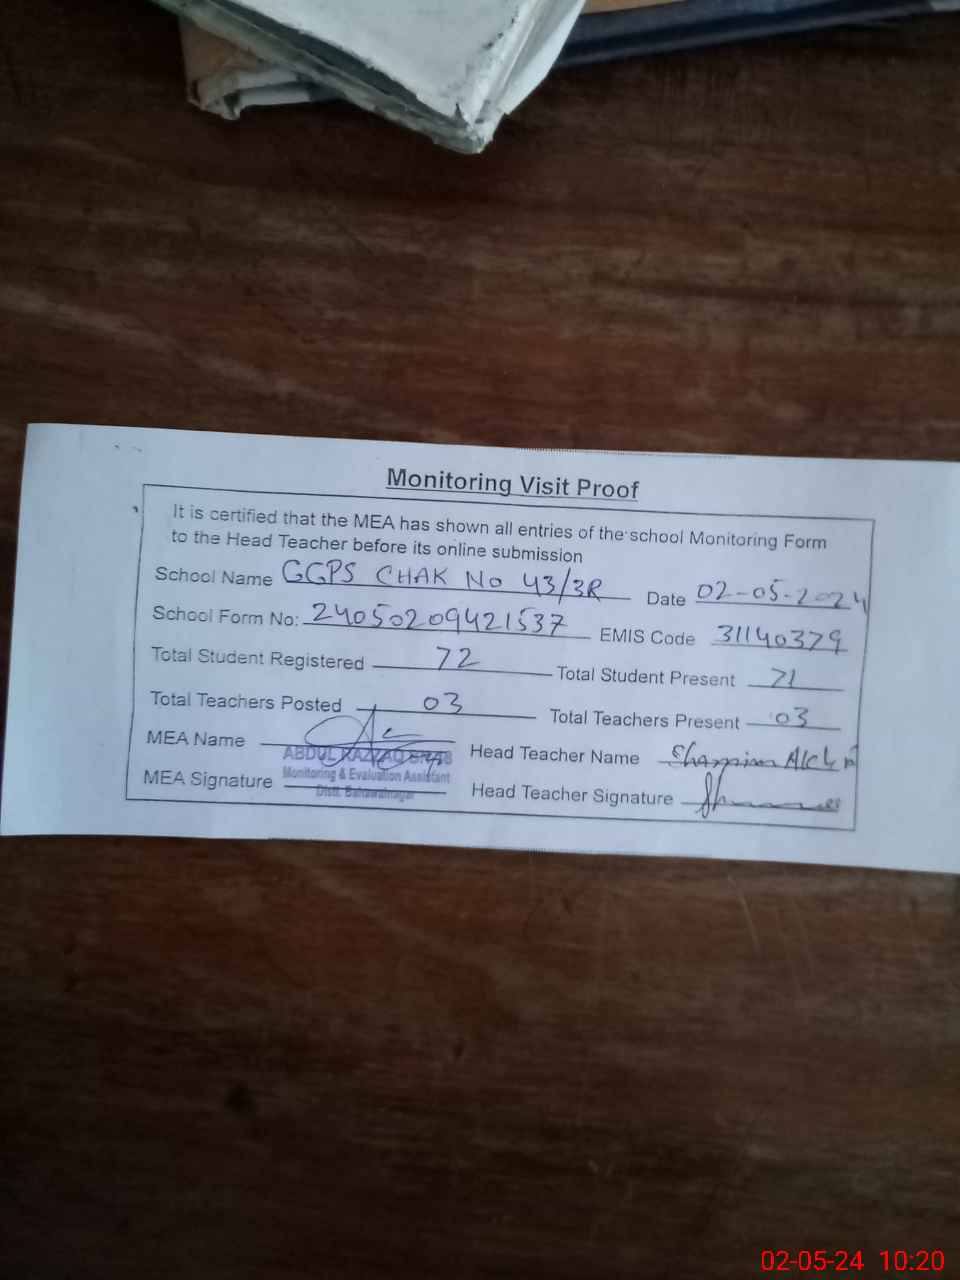 Monitoring Visit Proof
It is certified that the MEA has shown all entries of the school Monitoring Form
to the Head Teacher before its online submission
School Name GGPS CHAK No 43/3R Date 02-05-2024
School Form No: 24050209421537 EMIS Code 31140379
Total Student Registered 72 Total Student Present 71
Total Teachers Posted 03 Total Teachers Present 03
MEA Name ABDUL RAZZAQ Head Teacher Name
Monitoring & Evaluation Assistant
MEA Signature Head Teacher Signature
Distt. Bahawalnagar
02-05-24 10:20